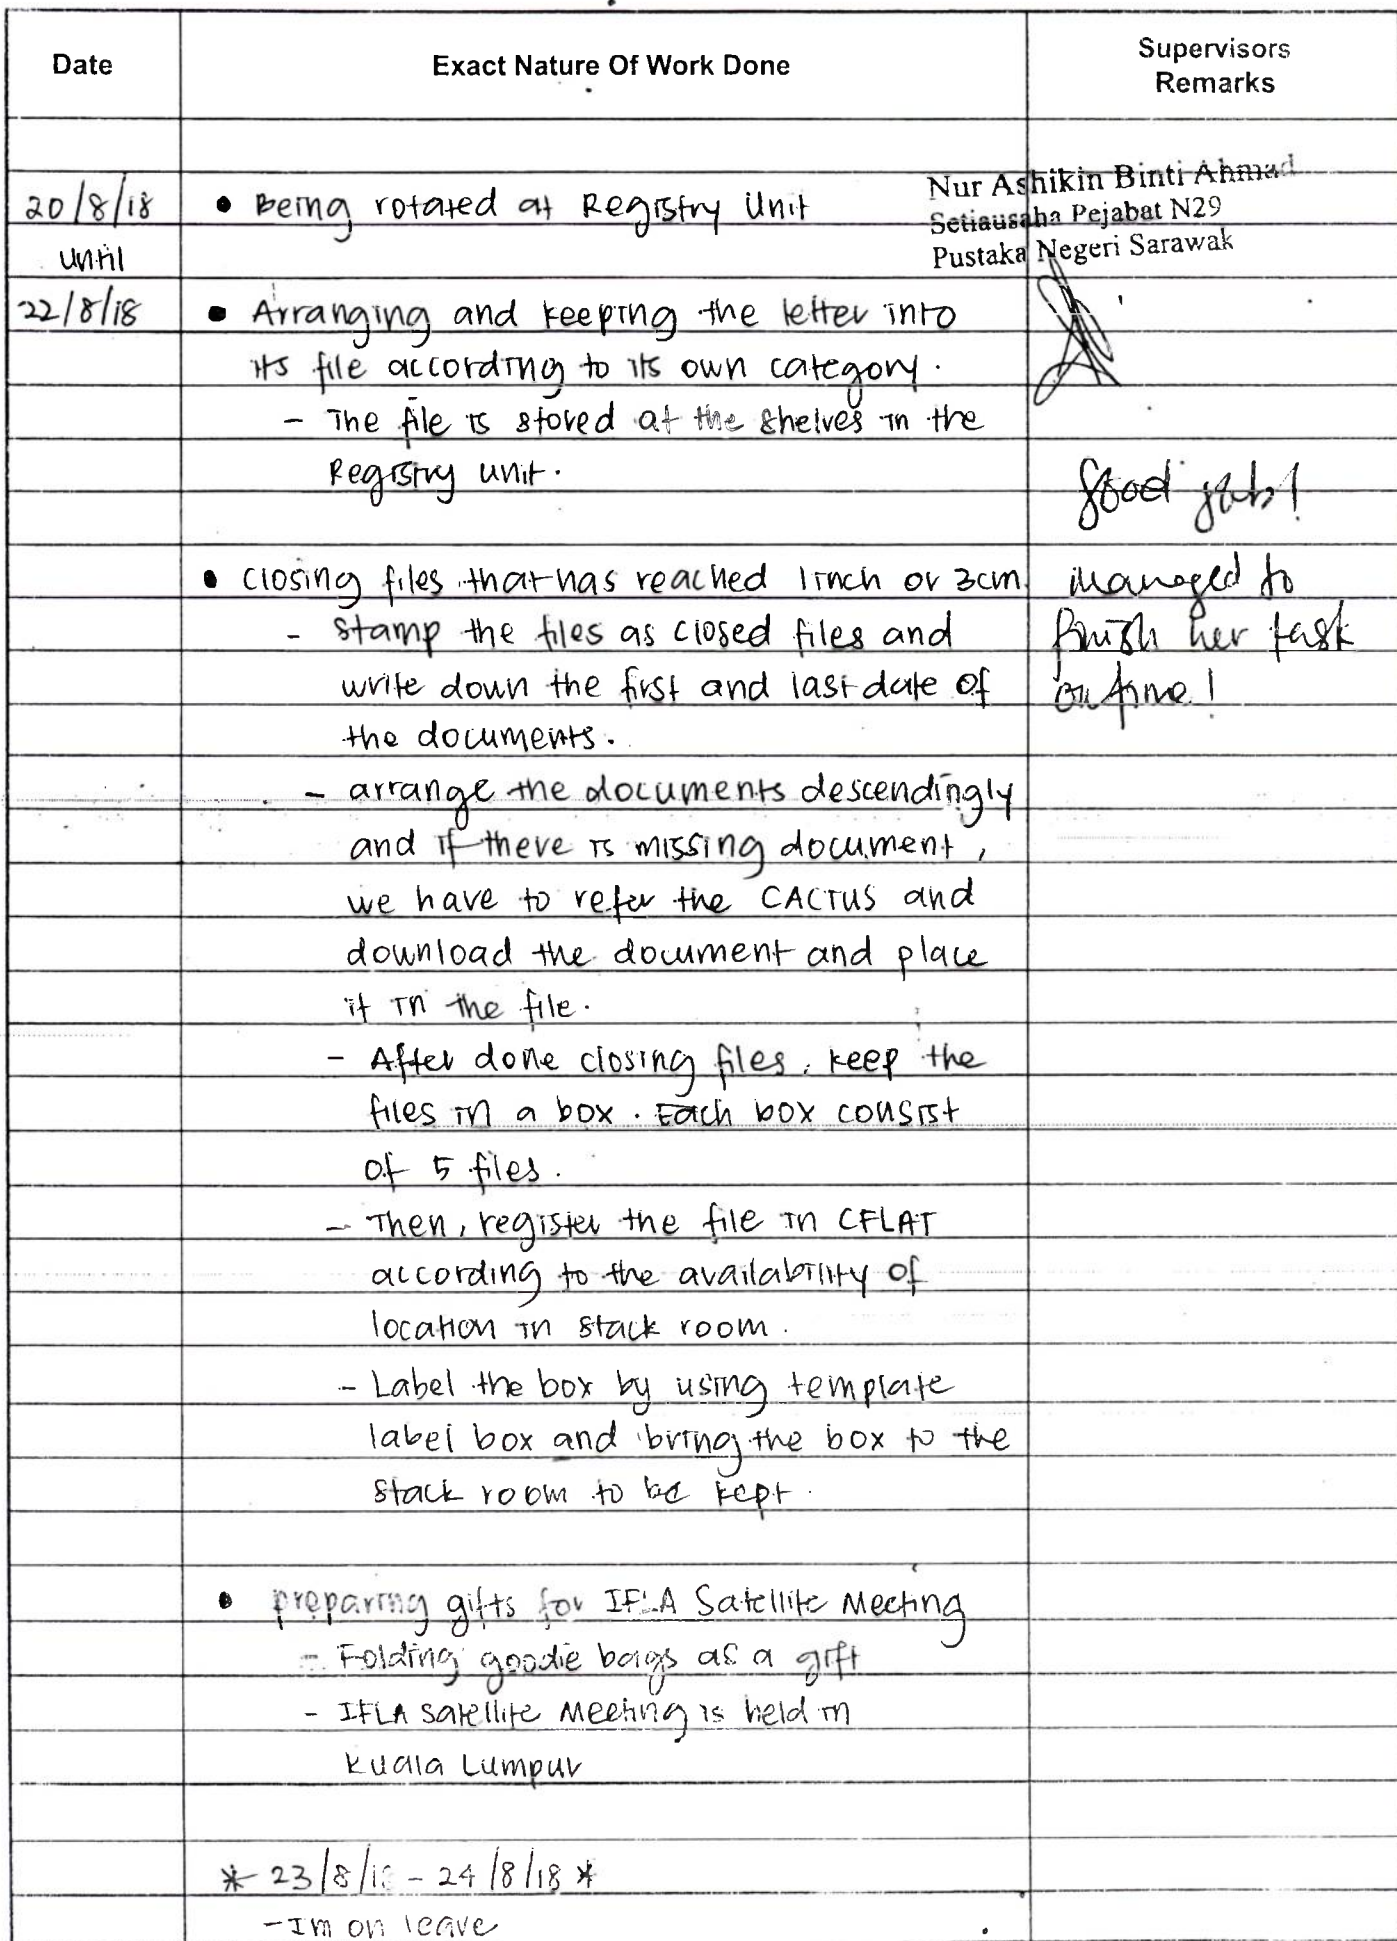 Date
Exact Nature Of Work Done
Supervisors
Remarks
20/8/18
until
22/8/18
• Being rotated at Registry Unit
• Arranging and keeping the letter into
its file according to its own category.
- The file is stored at the shelves in the
Registry unit.
• closing files that has reached 1 inch or 3cm
- stamp the files as closed files and
write down the first and last date of
the documents.
- arrange the documents descendingly
and if there is missing document,
we have to refer the CACTUS and
download the document and place
it in the file.
- After done closing files, keep the
files in a box. Each box consist
of 5 files.
- Then, register the file in CFLAT
according to the availability of
location in stack room.
- Label the box by using template
label box and bring the box to the
stack room to be kept.
• preparing gifts for IFLA Satellite Meeting
- Folding goodie bags as a gift
- IFLA satellite Meeting is held in
Kuala Lumpur
* 23/8/18 - 24/8/18 *
- Im on leave
Nur Ashikin Binti Ahmad
Setiausaha Pejabat N29
Pustaka Negeri Sarawak
Good job!
managed to
finish her task
on time!